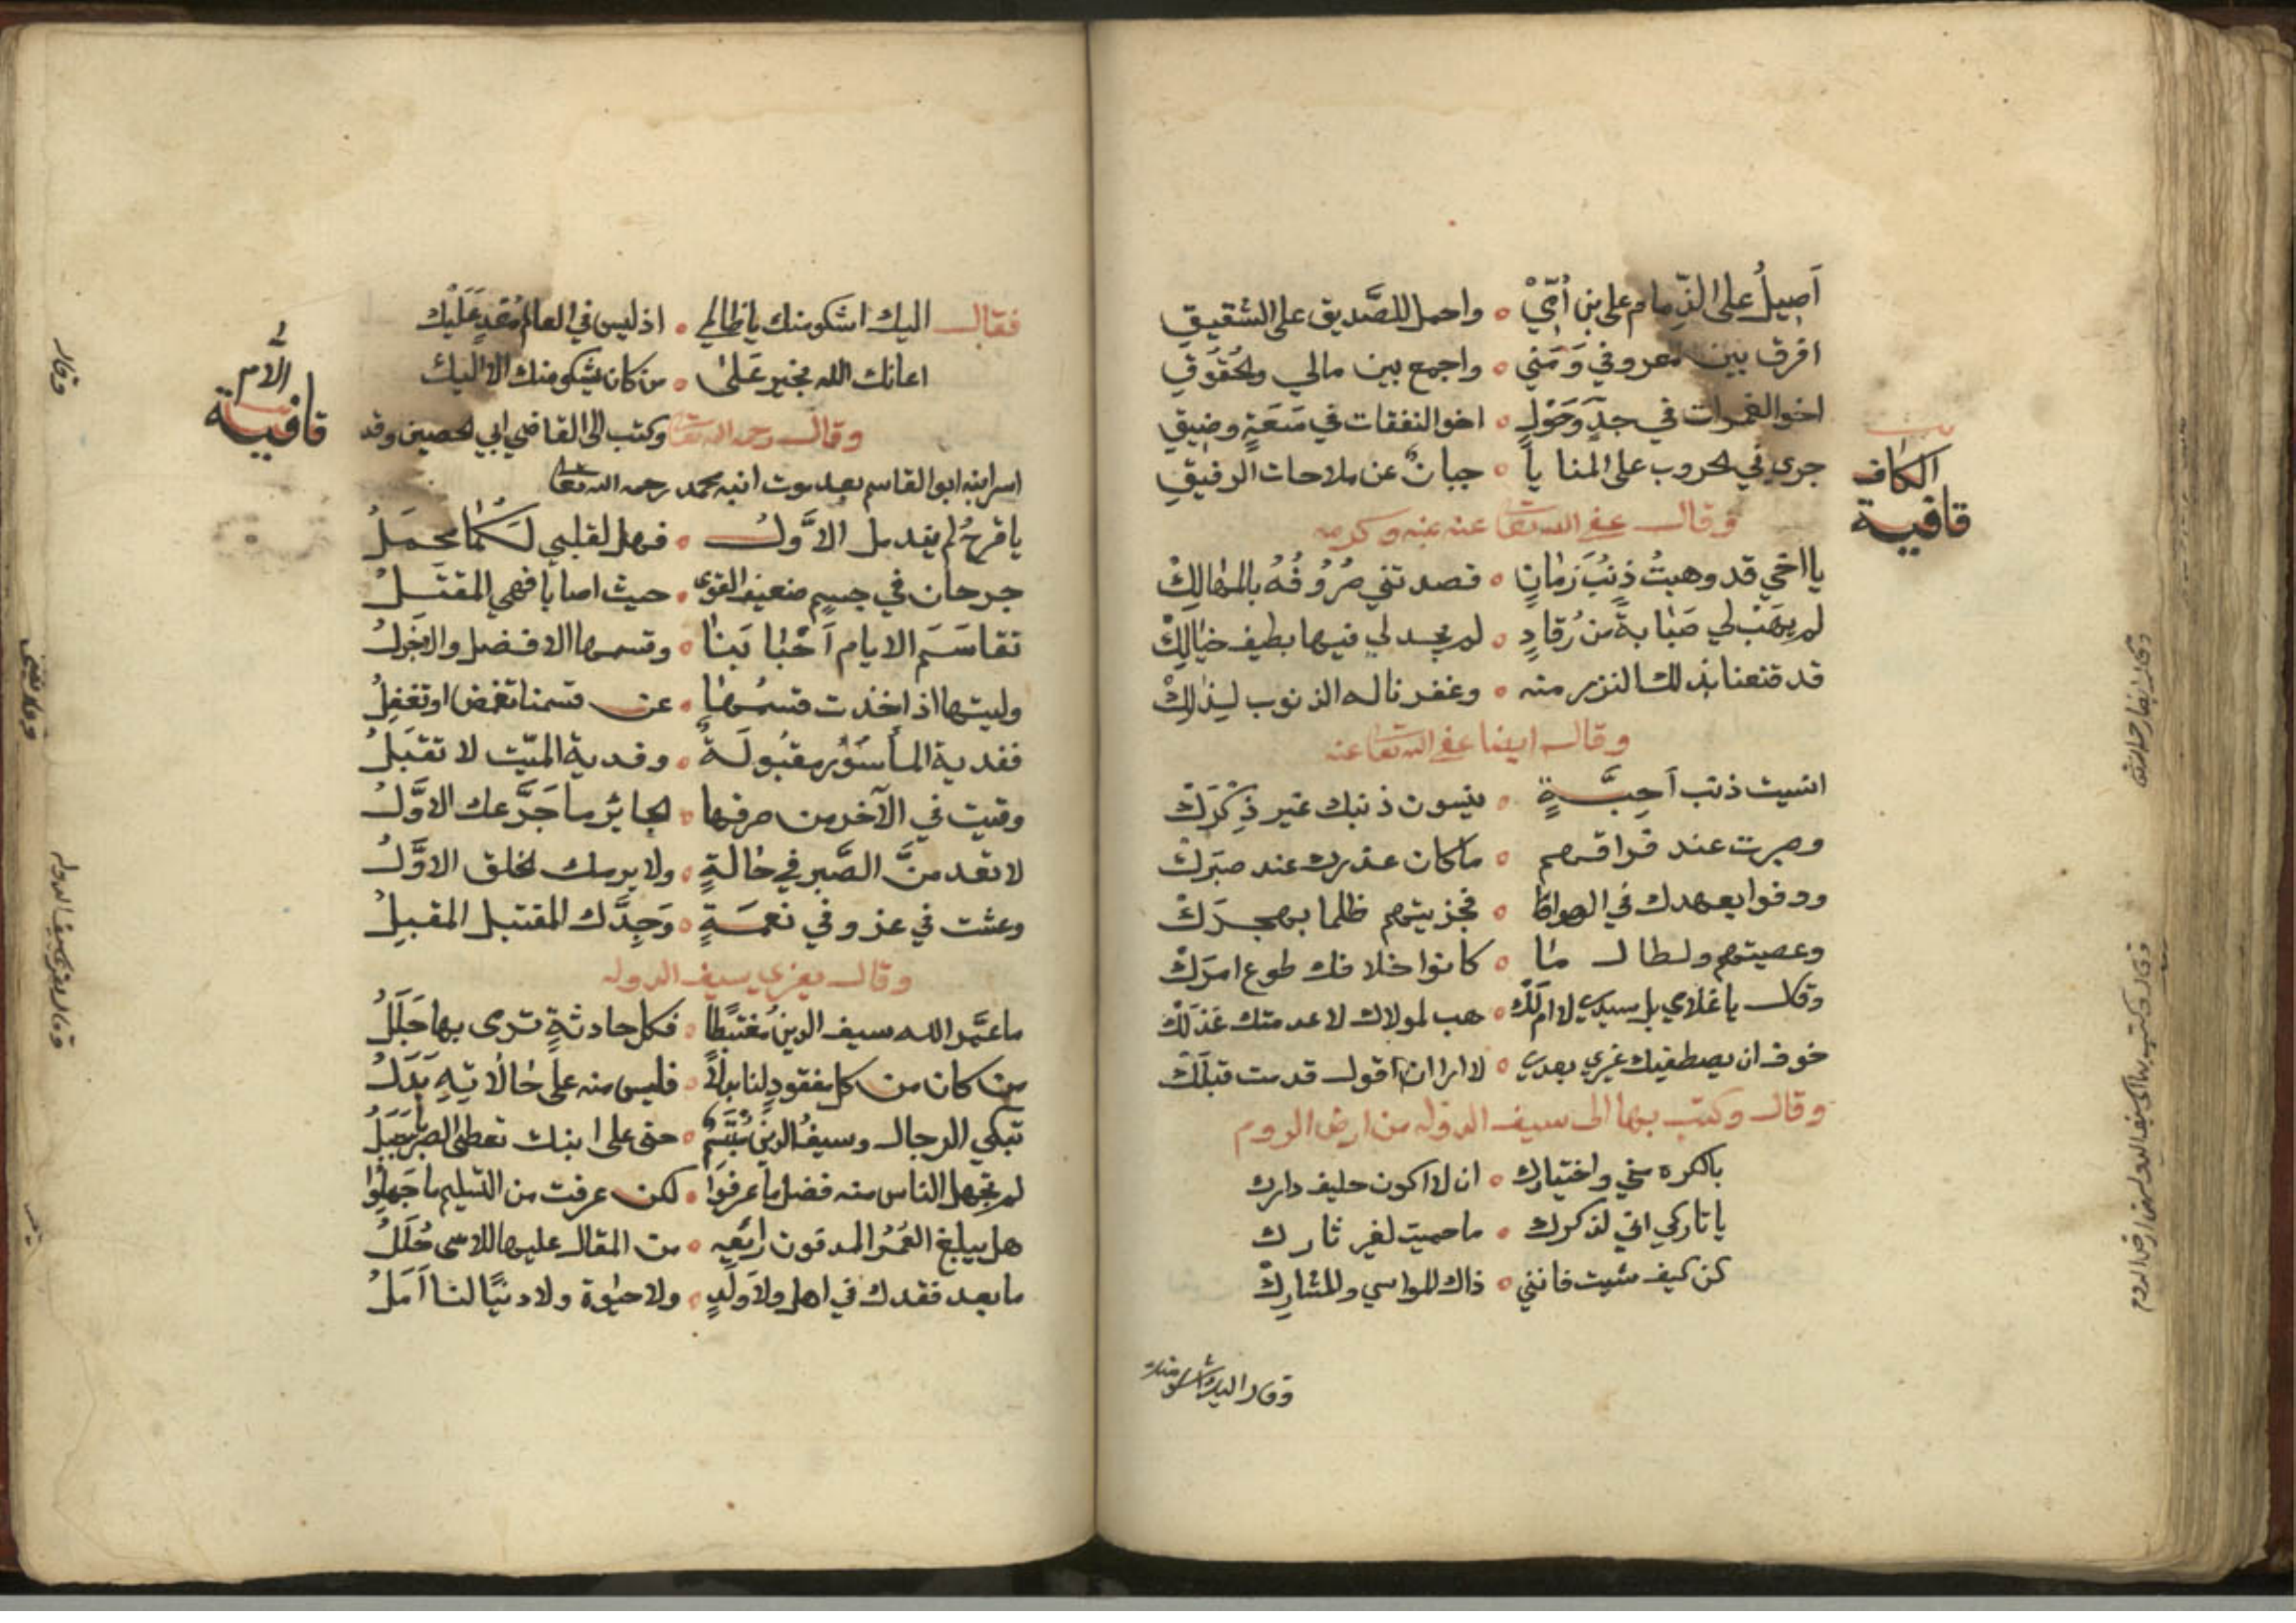 أصيل على الذمام على بن أمي ∘ واحمل للصديق على الشقيق
افرق بين معروفي ومني ∘ واجمع بين مالي والحقوق
اخو الغمرات في جد وحول ∘ اخو النفقات في سعة وضيق
جرى في الحروب على المنايا ∘ جبان عن ملاحات الرفيق
الكاف
قافية
وقال عفي الله تعا عنه بمنه وكرمه
يا اخي قد وهبت ذنب زمان ∘ قصدتني صروفه بالمهالك
لم يهب لي صبابة من رقاد ∘ لم يجد لي فيها بطيف خيالك
قد قنعنا بذلك النزر منه ∘ وغفرنا له الذنوب لذلك
وقال ايضا عفي الله تعا عنه
انسيت ذنب أحبة ∘ ينسون ذنبك غير ذكرك
وصبرت عند فراقهم ∘ ماكان عذرك عند صبرك
ووفوا بعهدك في الهوا ∘ فجزيتهم ظلما بهجرك
وعصيتهم ولطال ما ∘ كانوا خلافك طوع امرك
وقال يا غلامي بل سيدي لا املك ∘ هب لمولاك لا عدمتك عذلك
خوف ان يصطفيك غيري بعدي ∘ لا ارا ان اقول قدمت قبلك
وقال وكتب بها الى سيف الدولة من ارض الروم
بالكره مني واختيارك ∘ ان لا اكون حليف دارك
يا تاركي اني لذكرك ∘ ما حميت لغير تارك
كن كيف شيت فانني ∘ ذاك المواسي والمشارك
وقال اليك اشكو منك
فقال اليك اشكو منك يا ظالمي ∘ اذ ليس في العالم معد عليك
اعانك الله بخير على ∘ من كان يشكو منك الا اليك
وقال رحمه الله تعا وكتب الى القاضي ابي الحصين وقد
اللام
قافية
اسر ابنه ابو القاسم بعد موت ابنه محمد رحمه الله تعا
يا قرح لم يندمل الأول ∘ فهل لقلبي لكما محمل
جرحان في جسم ضعيف القوى ∘ حيث اصابا فهي المقتل
تقاسم الايام أحبابنا ∘ وقسمها الافضل والاجزل
وليتها اذ اخذت قسمها ∘ عن قسمنا تغمض او تغفل
ففدية المأسور مقبولة ∘ وفدية الميت لا تقبل
وقيت في الآخر من صرفها ∘ الجائز ما جرعك الاول
لا تعد من الصبر في حالة ∘ ولا يرمك الخلق الاول
وعشت في عز وفي نعمة ∘ وجدك المقتبل المقبل
وقال يعزي سيف الدولة
ما عمر الله سيف الدين مغتبطا ∘ فكل حادثة ترمى بها جلل
من كان من كل مفقود لنا بدلا ∘ فليس منه على حالاته بدل
تبكي الرجال وسيف الدين مبتسم ∘ حتى على ابنك تعطى الصبر يا جبل
لم يجهل الناس منه فضل ما عرفوا ∘ لكن عرفت من التسليم ما جهلوا
هل يبلغ القمر المدفون رائعه ∘ من المقال عليها للاسى حلل
ما بعد فقدك في اهل ولا ولد ∘ ولا حيوة ولا دنيا لنا أمل